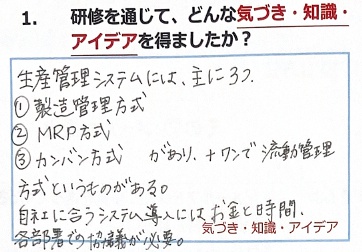 1. 研修を通じて、どんな気づき・知識・
アイデアを得ましたか？
生産管理システムには、主に3つ.
① 製造管理方式
② MRP方式
③ カンバン方式 があり、+ワンで流動管理
方式というものがある。
自社に合うシステム導入にはお金と時間、
各部署での協議が必要。
気づき・知識・アイデア